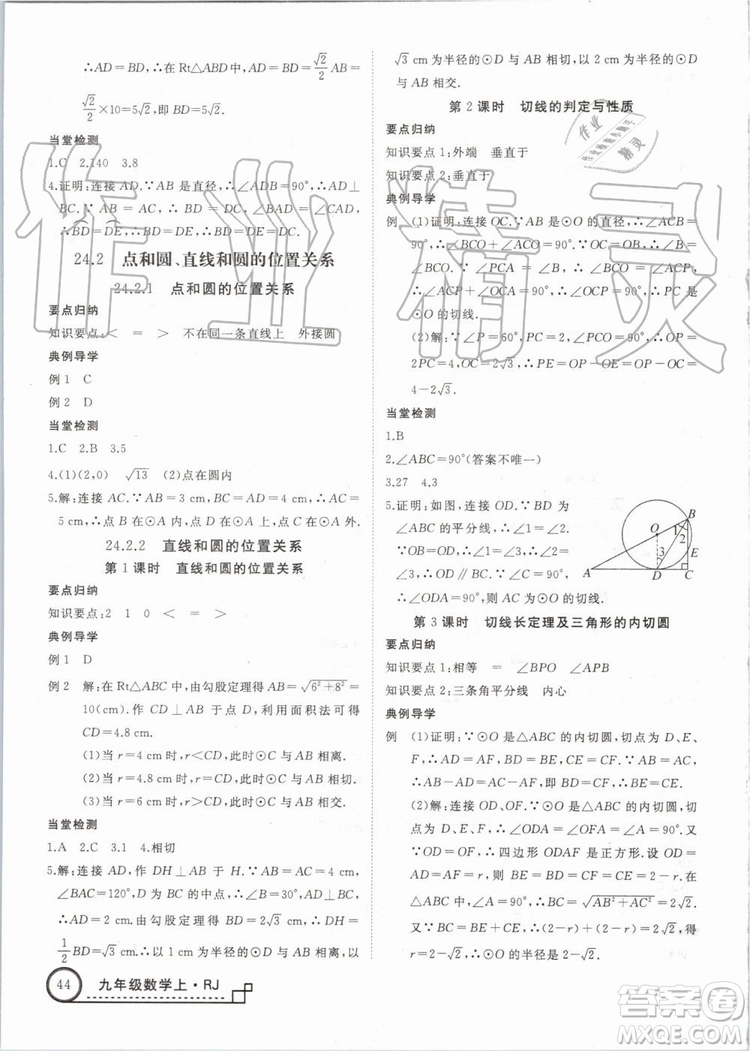 ∴AD=BD,∴在Rt△ABD中,AD=BD=√2/2AB=
√2/2×10=5√2,即BD=5√2.
当堂检测
1.C 2.140 3.8
4.证明:连接AD.∵AB是直径,∴∠ADB=90°,∴AD⊥
BC.∵AB=AC,∴BD=DC,∠BAD=∠CAD,∴
BD=DE,∴BD=DE,∴BD=DE=DC.
24.2 点和圆、直线和圆的位置关系
24.2.1 点和圆的位置关系
要点归纳
知识要点:< = > 不在同一条直线上 外接圆
典例导学
例1 C
例2 D
当堂检测
1.C 2.B 3.5
4.(1)(2,0) √13 (2)点在圆内
5.解:连接AC.∵AB=3cm,BC=AD=4cm,∴AC=
5cm,∴点B在⊙A内,点D在⊙A上,点C在⊙A外.
24.2.2 直线和圆的位置关系
第1课时 直线和圆的位置关系
要点归纳
知识要点:2 1 0 < = >
典例导学
例1 D
例2 解:在Rt△ABC中,由勾股定理得AB=√(6²+8²)=
10(cm).作CD⊥AB于点D,利用面积法可得
CD=4.8cm.
(1)当r=4cm时,r<CD,此时⊙C与AB相离.
(2)当r=4.8cm时,r=CD,此时⊙C与AB相切.
(3)当r=6cm时,r>CD,此时⊙C与AB相交.
当堂检测
1.A 2.C 3.1 4.相切
5.解:连接AD,作DH⊥AB于H.∵AB=AC=4cm,
∠BAC=120°,D为BC的中点,∴∠B=30°,AD⊥BC,
∴AD=2cm,由勾股定理得BD=2√3cm,∴DH=
1/2BD=√3cm.∴以1cm为半径的⊙D与AB相离,以
44 九年级数学上·RJ
√3cm为半径的⊙D与AB相切,以2cm为半径的⊙D
与AB相交.
第2课时 切线的判定与性质
要点归纳
知识要点1:外端 垂直于
知识要点2:垂直于
典例导学
例 (1)证明:连接OC.∵AB是⊙O的直径,∴∠BCA=
90°,∴∠BCO+∠ACO=90°.∵OC=OB,
∴∠B=∠BCO.∵∠PCA=∠B,∴∠BCO=
∠PCA,∴∠PCA+∠ACO=∠PCO=90°,∴PC
是⊙O的切线.
(2)解:∵∠P=60°,PC=2,∠PCO=90°,∴OP=
2PC=4,∴OC=2√3,∴OA=2√3,∴PA=OP-OA=
4-2√3.
当堂检测
1.B
2.∠ABC=90°(答案不唯一)
3.27 4.3
5.证明:如图,连接OD.∵BD为
∠ABC的平分线,∴∠1=∠2.
∵OB=OD,∴∠1=∠3,
∴∠2=∠3,∴OD∥BC.∵∠C=
90°,∴∠ODA=90°,则AC为⊙O的切线.
O B 1 2 3 E A D C
第3课时 切线长定理及三角形的内切圆
要点归纳
知识要点1:相等 ∠BPO ∠APB
知识要点2:三条角平分线 内心
典例导学
例 (1)证明:∵⊙O是△ABC的内切圆,切点为D、E、
F,∴AD=AF,BD=BE,CE=CF.∵AB=AC,
∴AB-AD=AC-AF,即BD=CF,∴BE=CE.
(2)解:连接OD、OF.∵⊙O是△ABC的内切圆,
切点为D、E、F,∴∠ODA=∠OFA=∠A=90°.又
∵OD=OF,∴四边形ODAF是正方形.设OD=
AD=AF=r,则BE=BD=CF=CE=2-r.在
△ABC中,∠A=90°,∴BC=√(AB²+AC²)=2√2.
又∵BC=BE+CE,∴(2-r)+(2-r)=2√2,
得r=2-√2,∴⊙O的半径是2-√2.
作业精灵
答案圈
MXQE.COM